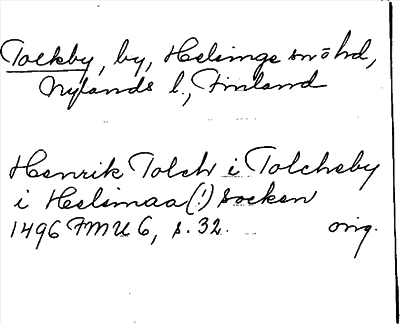 Tolkby, by, Helsinge sn o hd,
Nylands l., Finland
Henrik Tolch i Tolchsby
i Helsinaa (!) socken
1496 FMU 6, s. 32. orig.